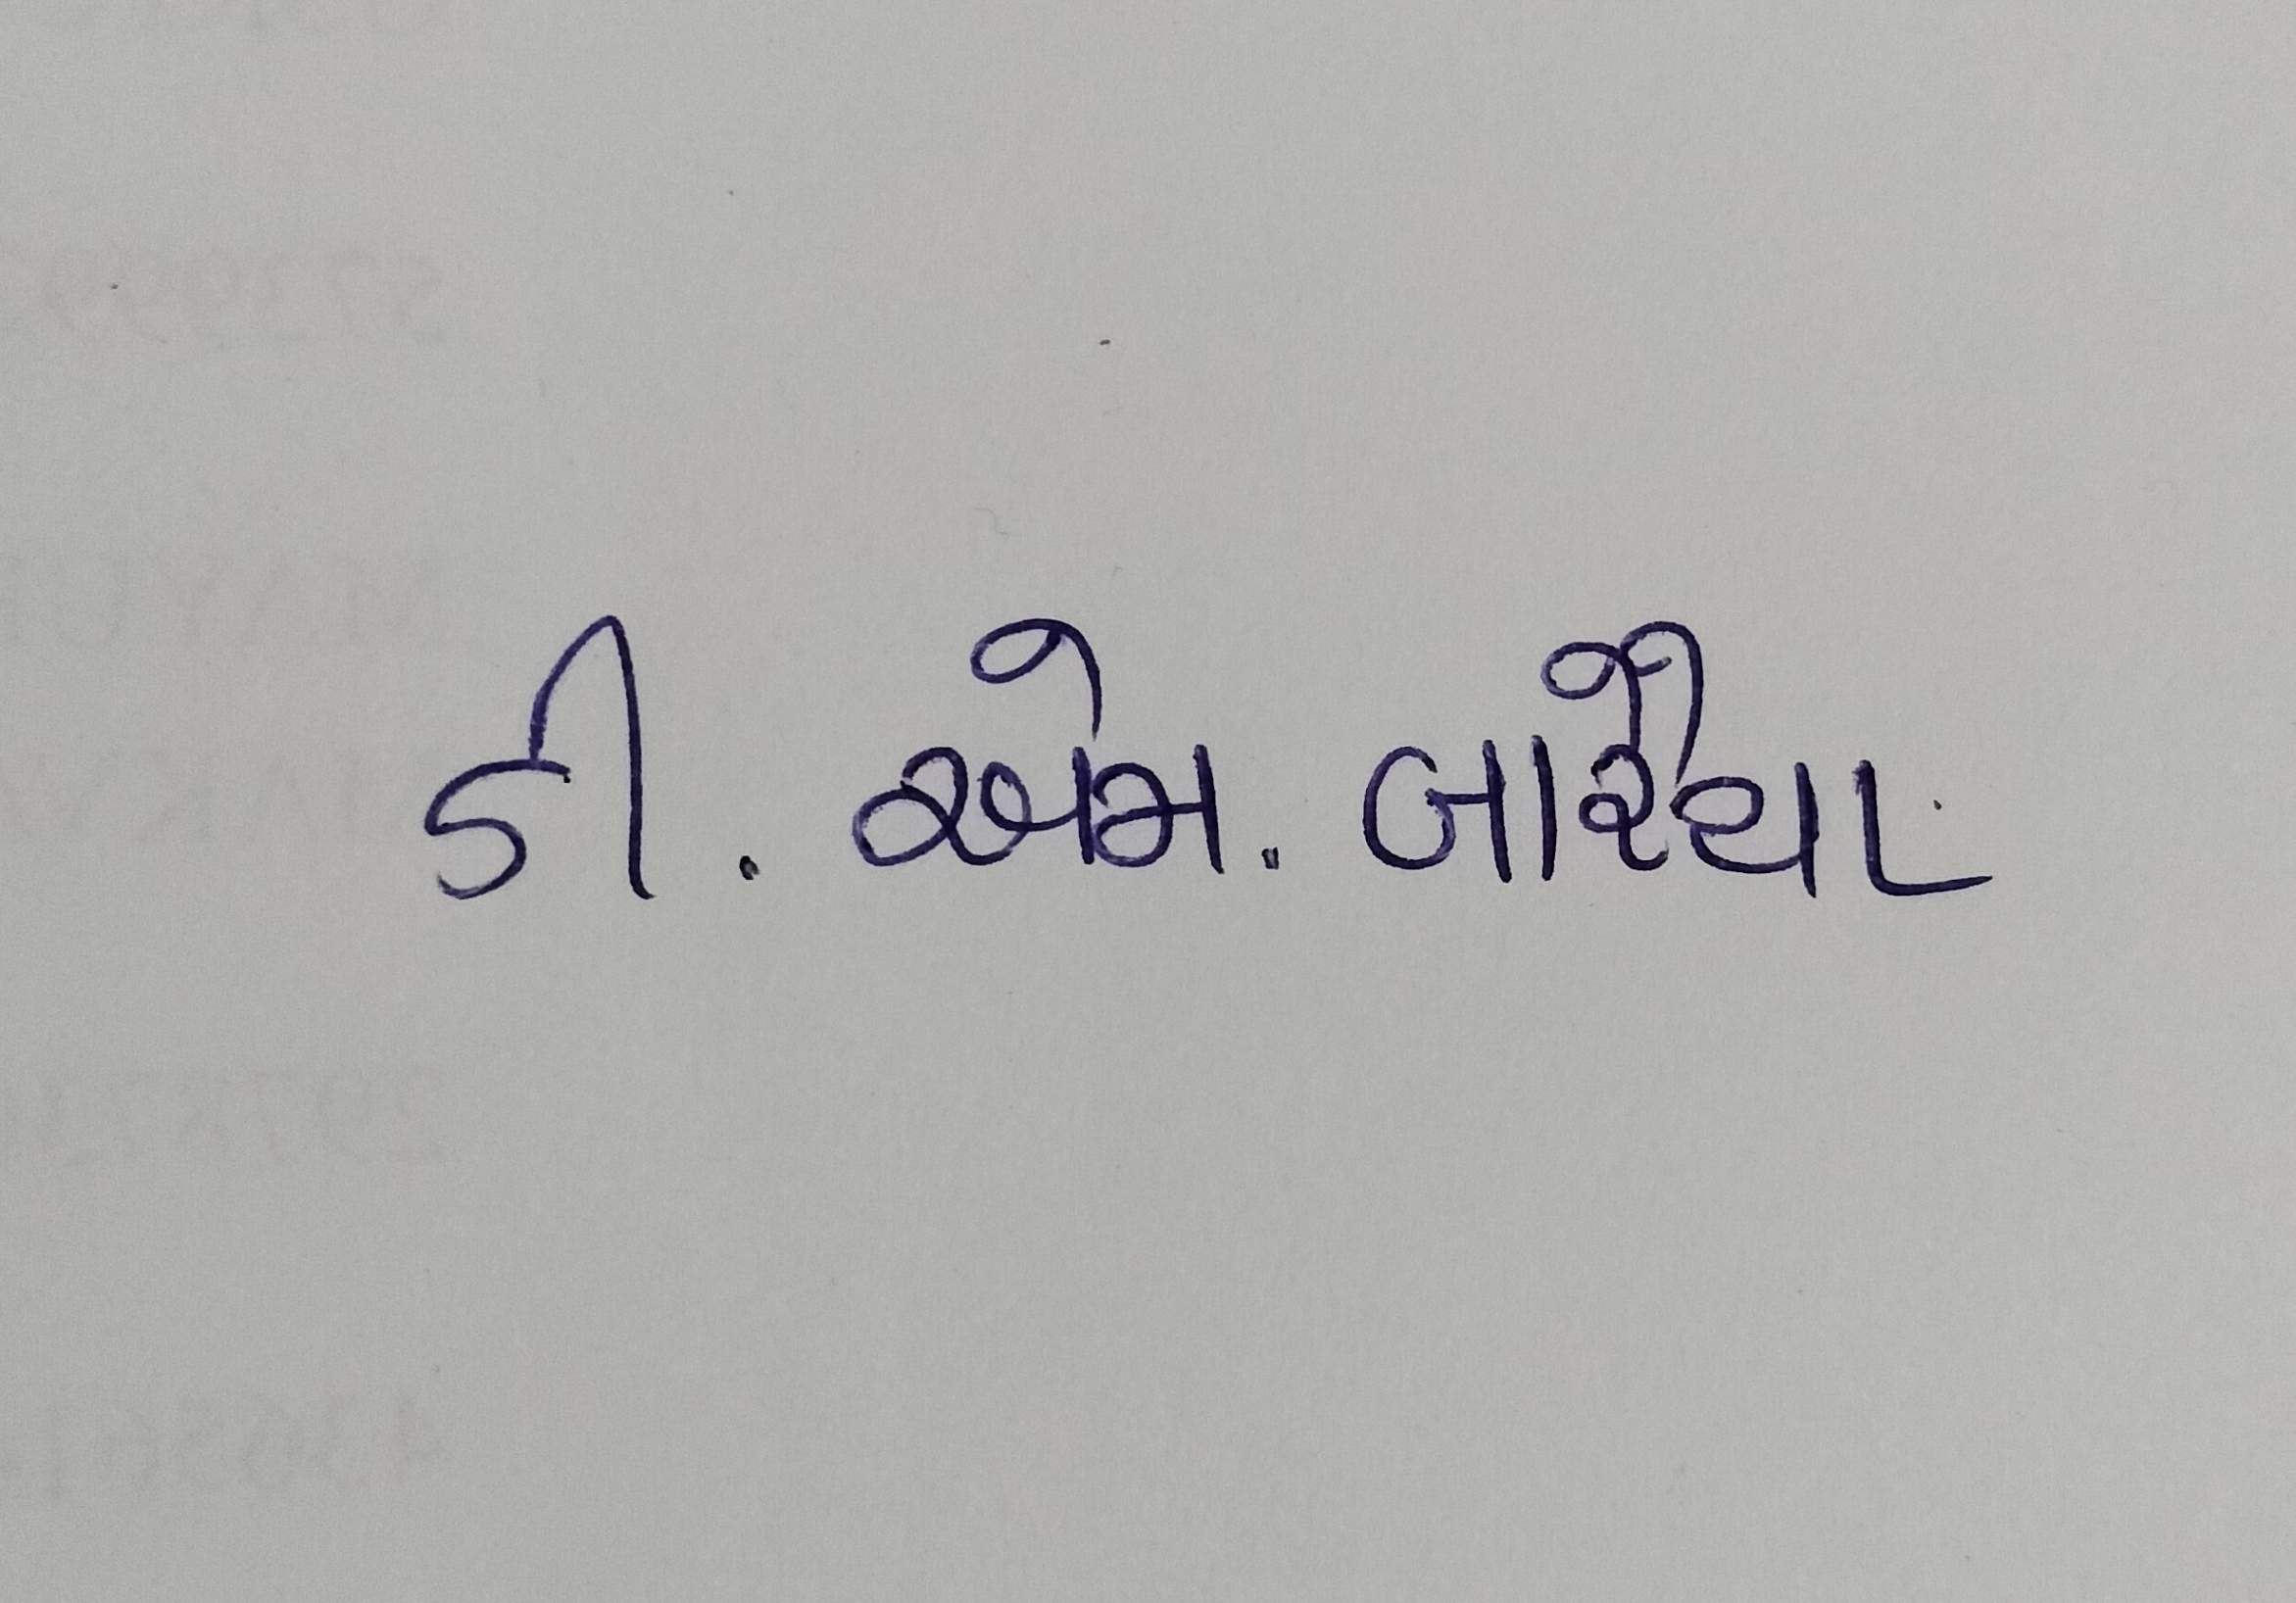 ડી. એમ. બારૈયા